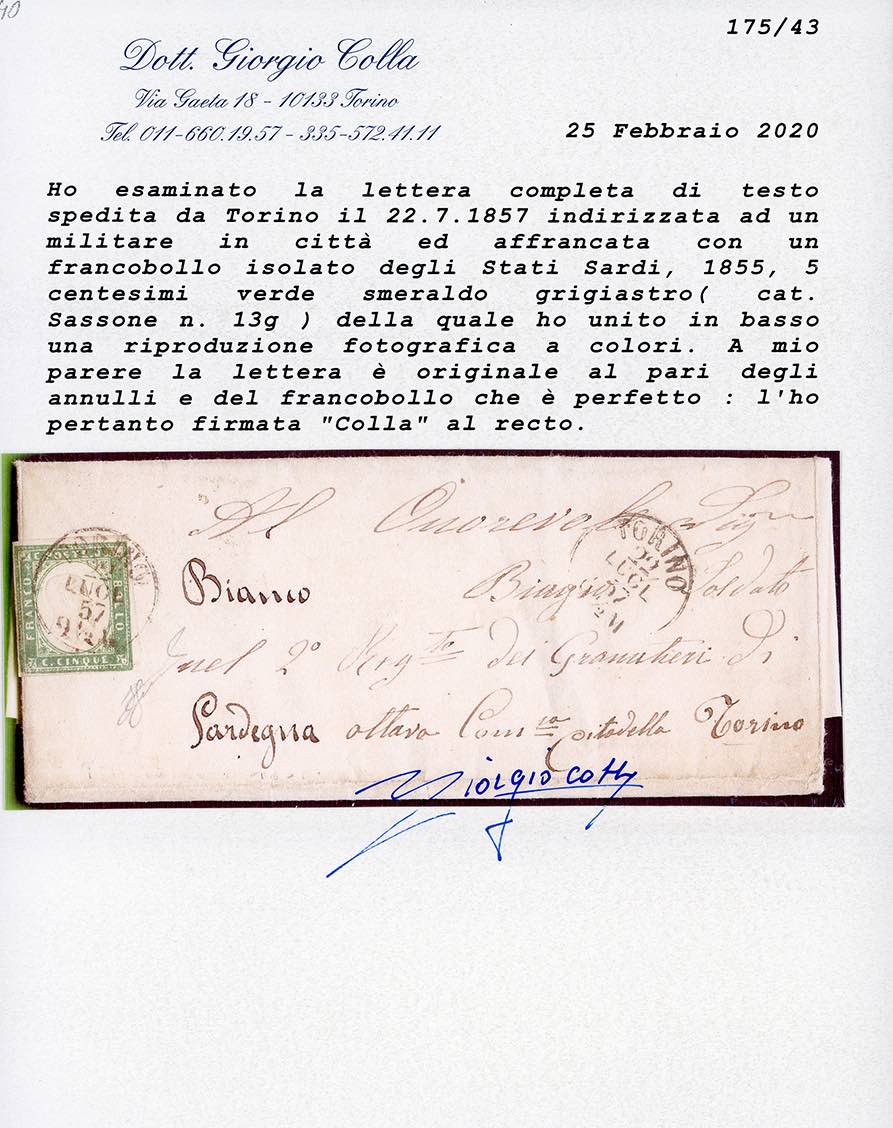 40
175/43
Dott. Giorgio Colla
Via Gaeta 18 - 10133 Torino
Tel. 011-660.19.57 - 335-572.41.11
25 Febbraio 2020
Ho esaminato la lettera completa di testo
spedita da Torino il 22.7.1857 indirizzata ad un
militare in città ed affrancata con un
francobollo isolato degli Stati Sardi, 1855, 5
centesimi verde smeraldo grigiastro( cat.
Sassone n. 13g ) della quale ho unito in basso
una riproduzione fotografica a colori. A mio
parere la lettera è originale al pari degli
annulli e del francobollo che è perfetto : l'ho
pertanto firmata "Colla" al recto.
Al Onorevole
Bianco Soldato
nel 2° Regg.to dei Granatieri Di
Sardegna ottava Com.ia Citadella Torino
FRANCO
BOLLO
C. CINQUE
57
TORINO
22
LUGL
57
Giorgio Colla